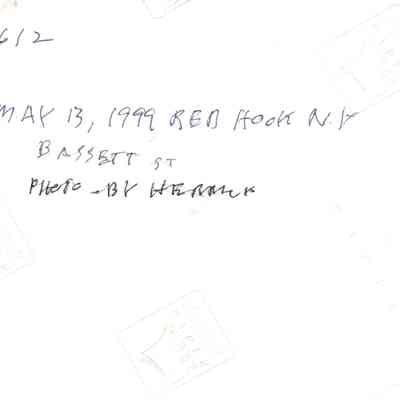 612
MAY 13, 1999 RED HOOK N.Y
BASSETT ST
PHOTO - BY HERMAN